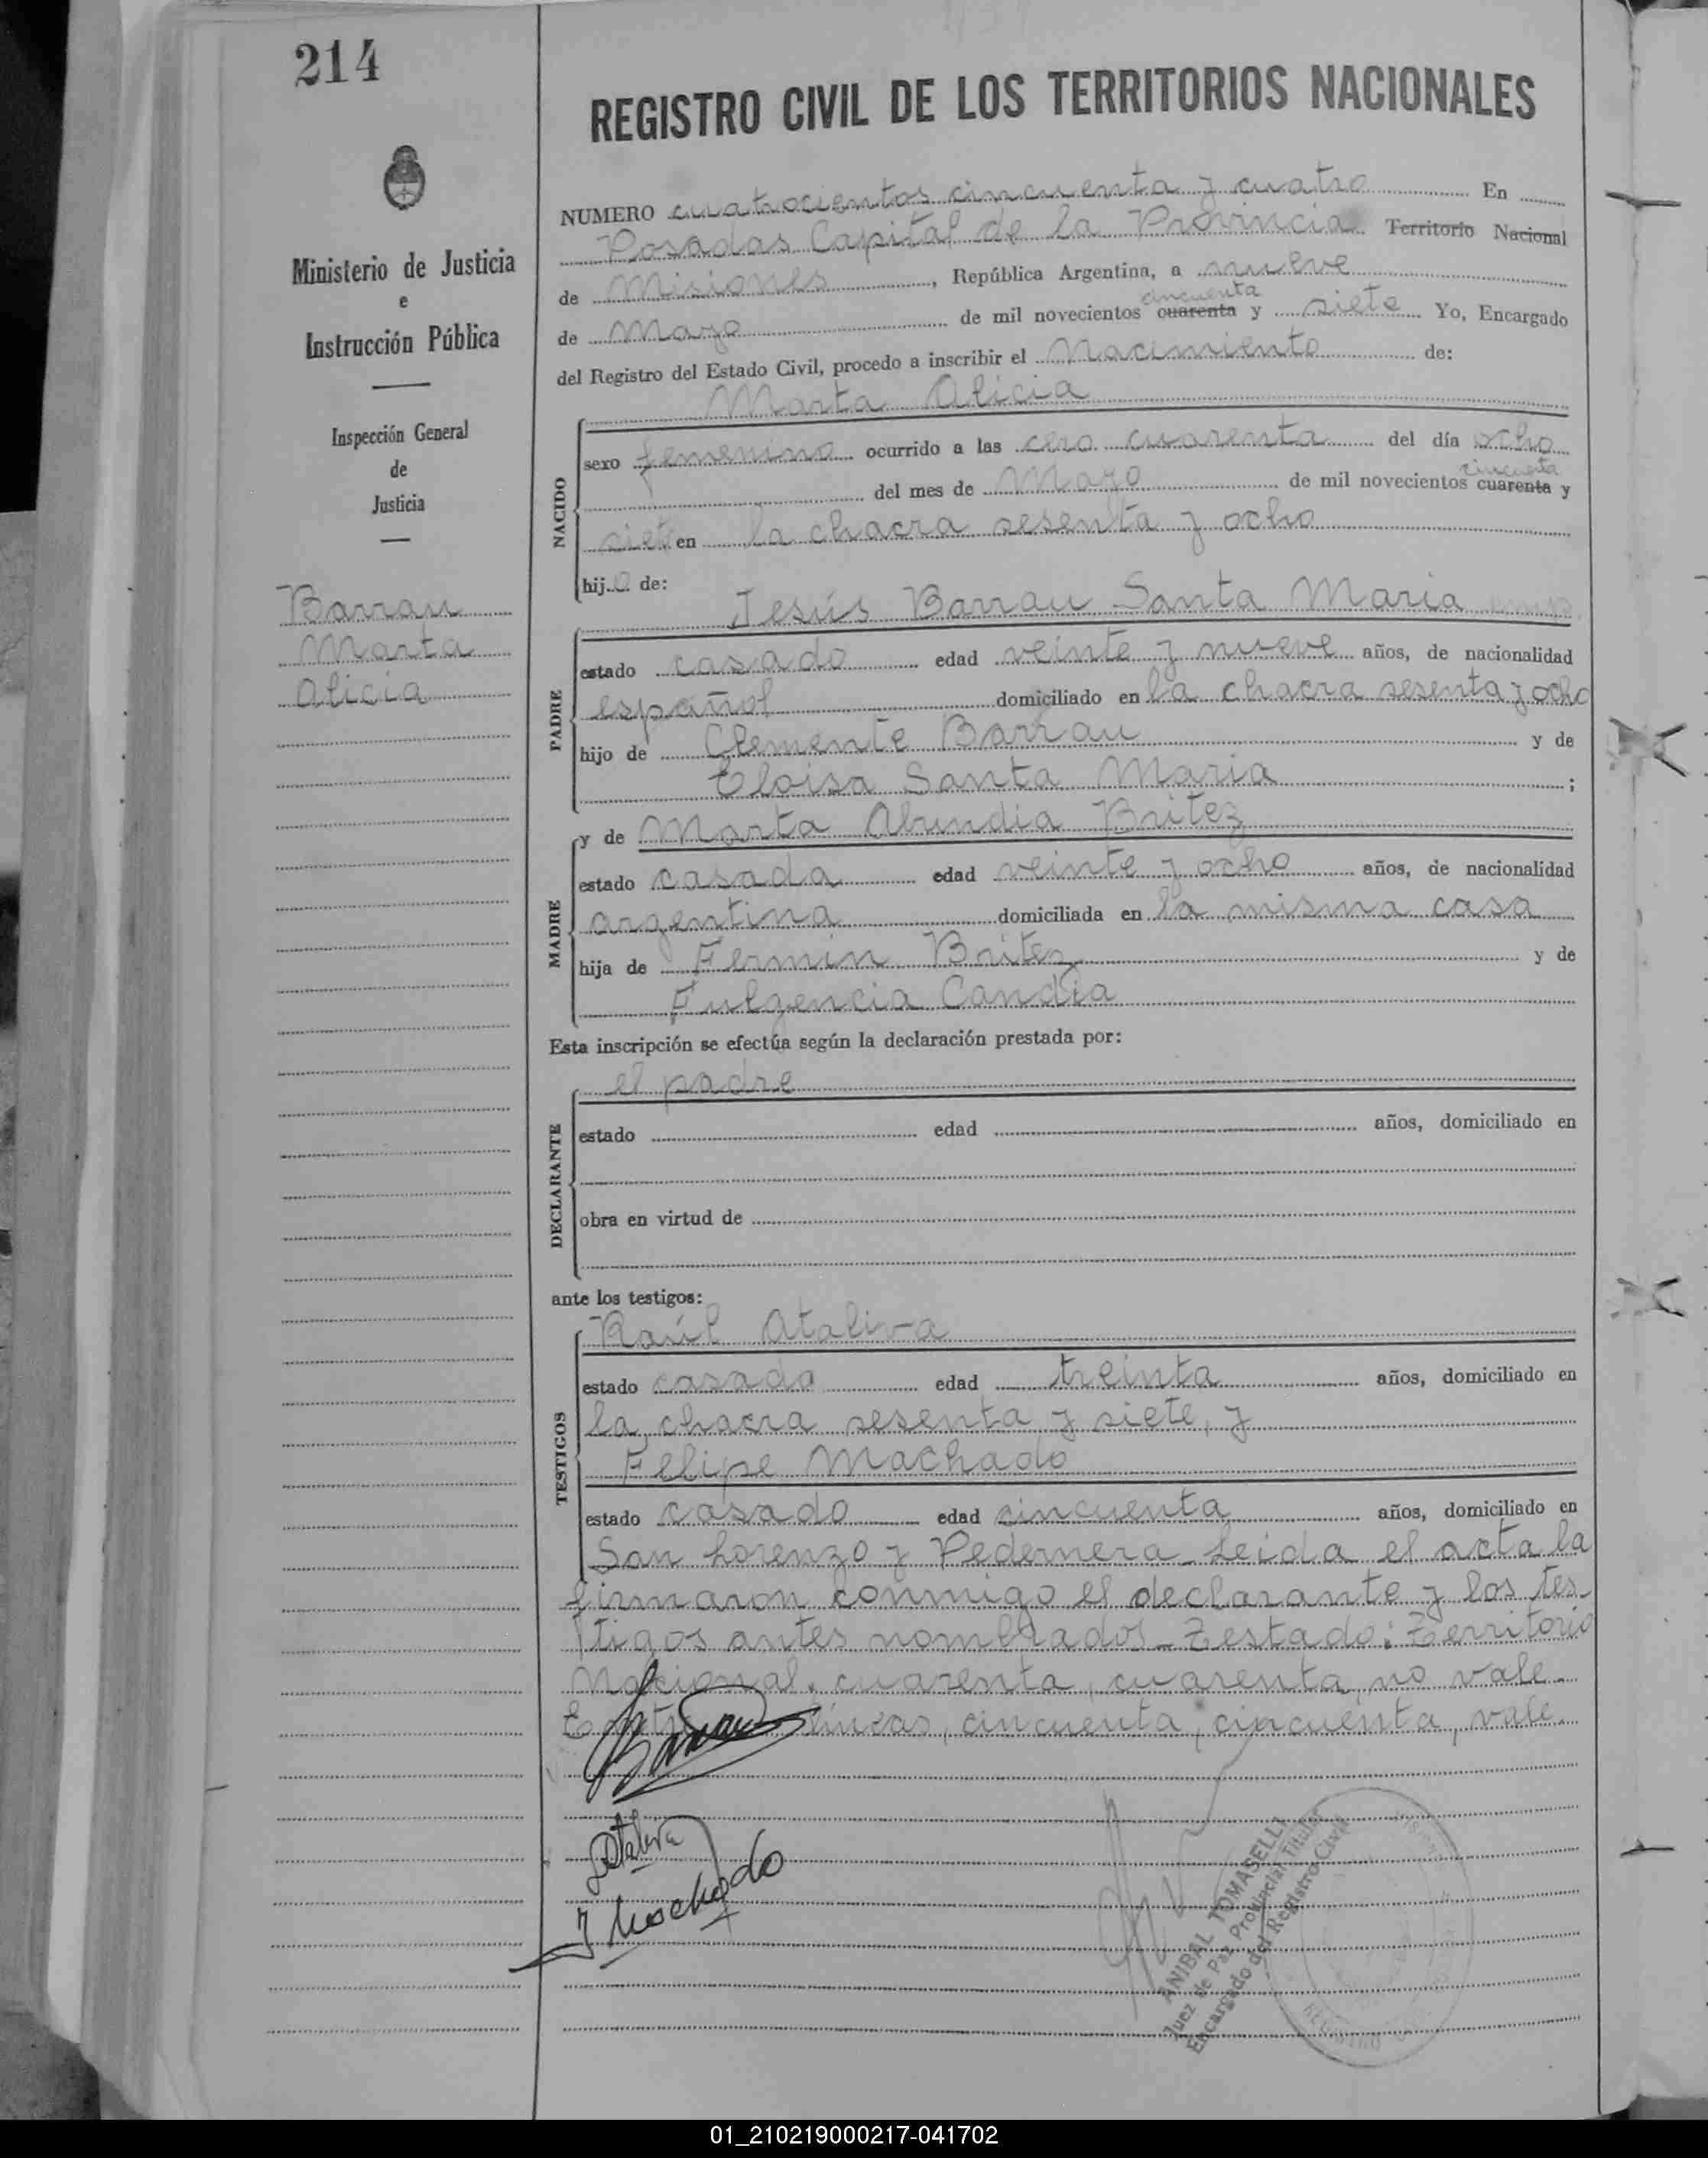 214
Ministerio de Justicia
e
Instrucción Pública
Inspección General
de
Justicia
Barrau
Marta
Alicia
REGISTRO CIVIL DE LOS TERRITORIOS NACIONALES
NUMERO cuatrocientos cincuenta y cuatro En
Posadas Capital de la Provincia Territorio Nacional
de Misiones, República Argentina, a nueve
cincuenta
de Mayo de mil novecientos cuarenta y siete Yo, Encargado
del Registro del Estado Civil, procedo a inscribir el Nacimiento de:
Marta Alicia
NACIDO
sexo femenino ocurrido a las cero cuarenta del día ocho
cincuenta
del mes de Mayo de mil novecientos cuarenta y
siete en la chacra sesenta y ocho
hija de:
PADRE
Jesús Barrau Santa Maria
estado casado edad veinte y nueve años, de nacionalidad
español domiciliado en la chacra sesenta y ocho
hijo de Clemente Barrau y de
Eloisa Santa Maria ;
MADRE
y de Marta Abundia Britez
estado casada edad veinte y ocho años, de nacionalidad
argentina domiciliada en la misma casa
hija de Fermin Britez y de
Fulgencia Candia
Esta inscripción se efectúa según la declaración prestada por:
DECLARANTE
el padre
estado edad años, domiciliado en
obra en virtud de
ante los testigos:
TESTIGOS
Raúl Ataliva
estado casado edad treinta años, domiciliado en
la chacra sesenta y siete, y
Felipe Machado
estado casado edad cincuenta años, domiciliado en
San Lorenzo y Pedernera. Leida el acta la
firmaron conmigo el declarante y los tes-
tigos antes nombrados. Testado: Territorio
Nacional, cuarenta, cuarenta, no vale.
líneas, cincuenta, cincuenta, vale.
Barrau
Ataliva
F Machado
ANIBAL TOMASELLI
Juez de Paz Provincial Titular
Encargado del Registro Civil
REGISTRO
01_210219000217-041702